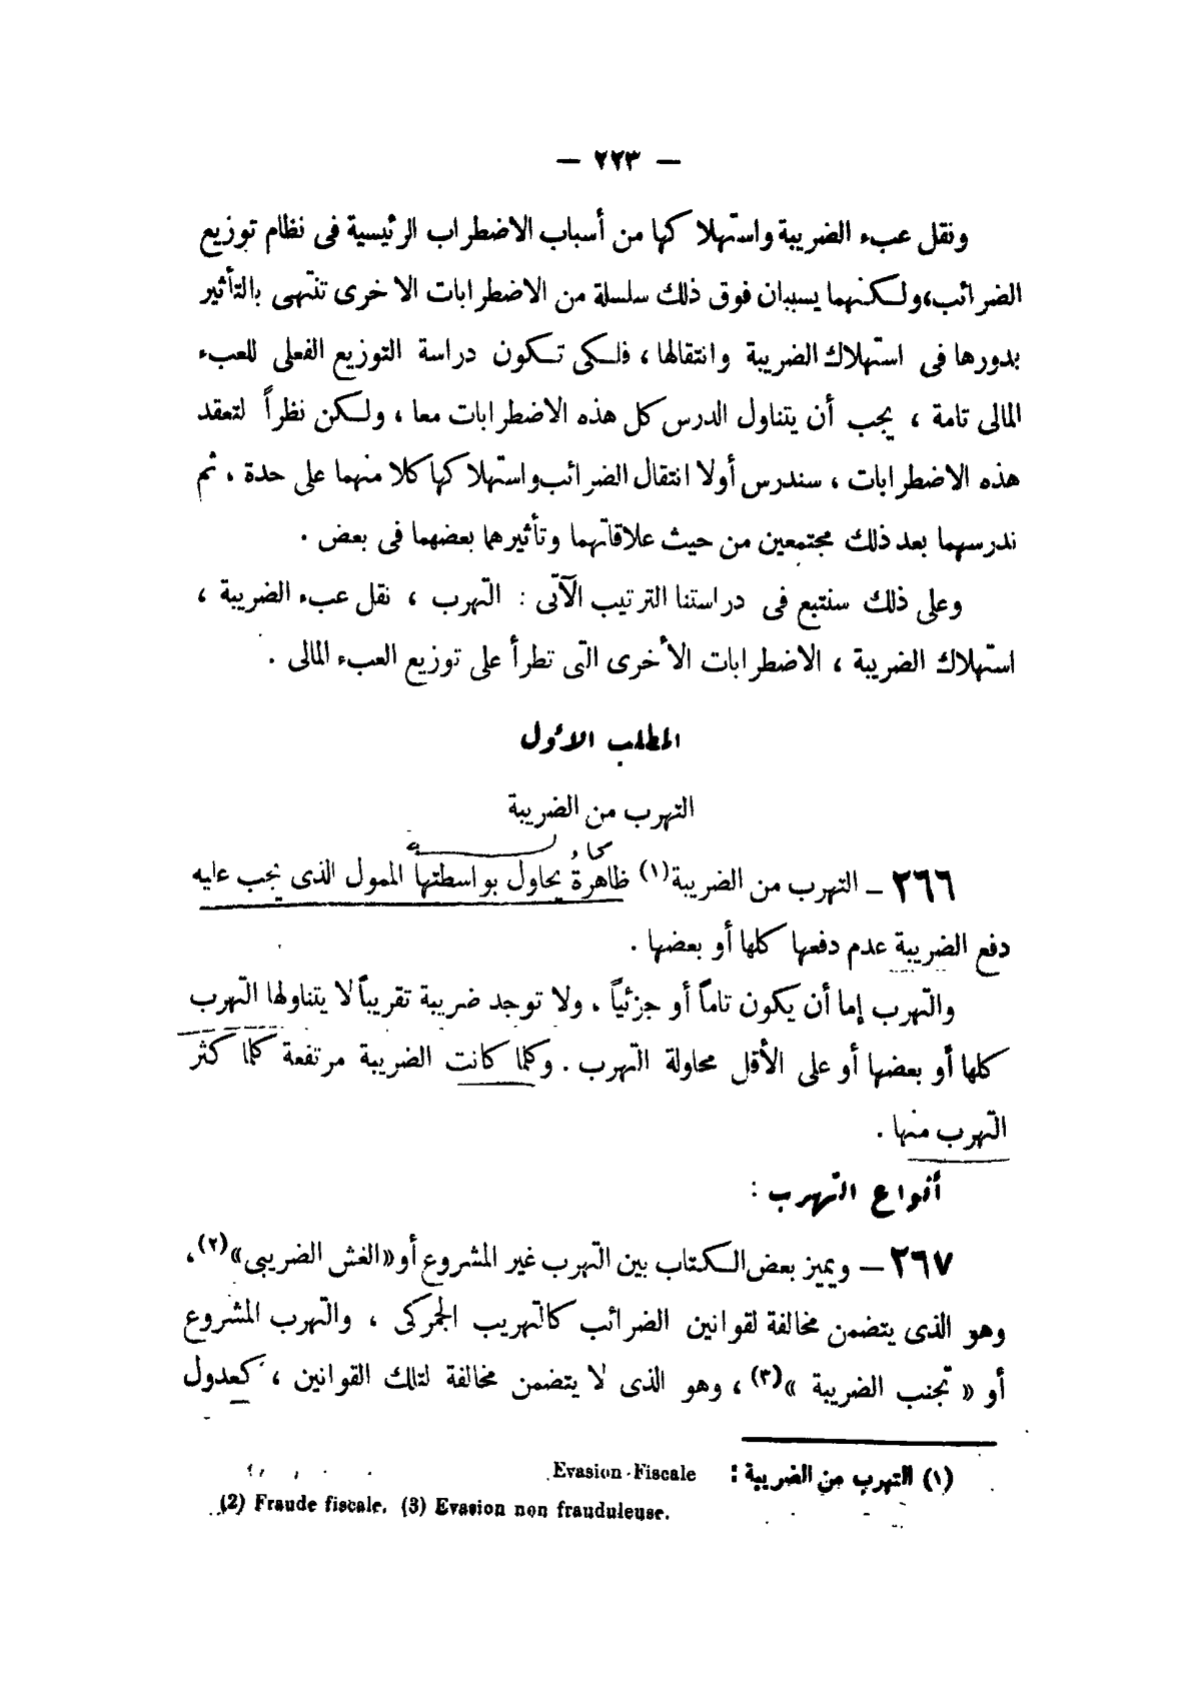 — ٢٢٣ —
ونقل عبء الضريبة واستهلاكها من أسباب الاضطراب الرئيسية فى نظام توزيع
الضرائب، ولكنهما يسببان فوق ذلك سلسلة من الاضطرابات الاخرى تنتهى بالتأثير
بدورها فى استهلاك الضريبة وانتقالها ، فلكى تكون دراسة التوزيع الفعلى للعبء
المالى تامة ، يجب أن يتناول الدرس كل هذه الاضطرابات معا ، ولكن نظراً لتعقد
هذه الاضطرابات ، سندرس أولا انتقال الضرائب واستهلاكها كلا منهما على حدة ، ثم
ندرسهما بعد ذلك مجتمعين من حيث علاقاتهما وتأثيرهما بعضهما فى بعض .
وعلى ذلك سنتبع فى دراستنا الترتيب الآتى : التهرب ، نقل عبء الضريبة ،
استهلاك الضريبة ، الاضطرابات الأخرى التى تطرأ على توزيع العبء المالى .
المطلب الأول
التهرب من الضريبة
٢٦٦ — التهرب من الضريبة (١) ظاهرة يحاول بواسطتها الممول الذى يجب عليه
دفع الضريبة عدم دفعها كلها أو بعضها .
والتهرب إما أن يكون تاماً أو جزئياً . ولا توجد ضريبة تقريباً لا يتناولها التهرب
كلها أو بعضها أو على الأقل محاولة التهرب . وكلما كانت الضريبة مرتفعة كلما كثر
التهرب منها .
أنواع التهرب :
٢٦٧ — ويميز بعض الكتاب بين التهرب غير المشروع أو «الغش الضريبى» (٢) ،
وهو الذى يتضمن مخالفة لقوانين الضرائب كالتهريب الجمركى ، والتهرب المشروع
أو « تجنب الضريبة » (٣) ، وهو الذى لا يتضمن مخالفة لتلك القوانين ، كعدول
(١) التهرب من الضريبة : Evasion Fiscale
(2) Fraude fiscale. (3) Evasion non frauduleuse.